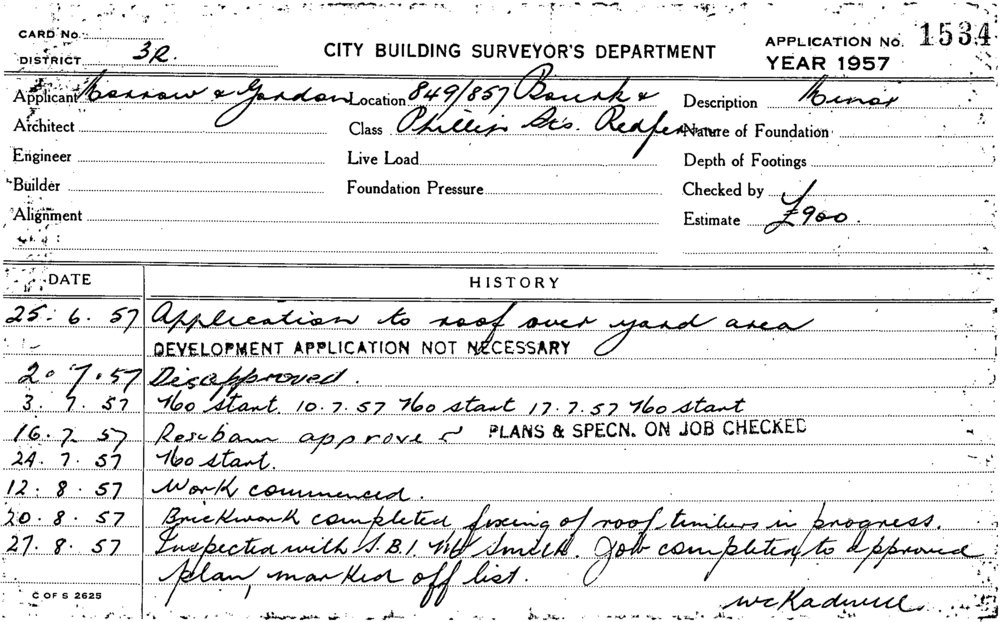 CARD No.
DISTRICT 3R.
CITY BUILDING SURVEYOR'S DEPARTMENT
APPLICATION No. 1534
YEAR 1957
Applicant Morrow & Gordon Location 849/857 Bourke & Description Minor
Architect Class Phillip Sts. Redfern Nature of Foundation
Engineer Live Load Depth of Footings
Builder Foundation Pressure Checked by
Alignment Estimate £900.
DATE HISTORY
25. 6. 57 Application to roof over yard area
DEVELOPMENT APPLICATION NOT NECESSARY
2. 7. 57 Disapproved.
3. 7. 57 No start. 10.7.57 No start 17.7.57 No start
16. 7. 57 approve PLANS & SPECN. ON JOB CHECKED
24. 7. 57 No start.
12. 8. 57 Work commenced.
20. 8. 57 Brickwork completed fixing of roof timbers in progress.
27. 8. 57 Inspected with S.B.I. Mr Smith. Job completed to approved
plan, marked off list.
C OF S 2625